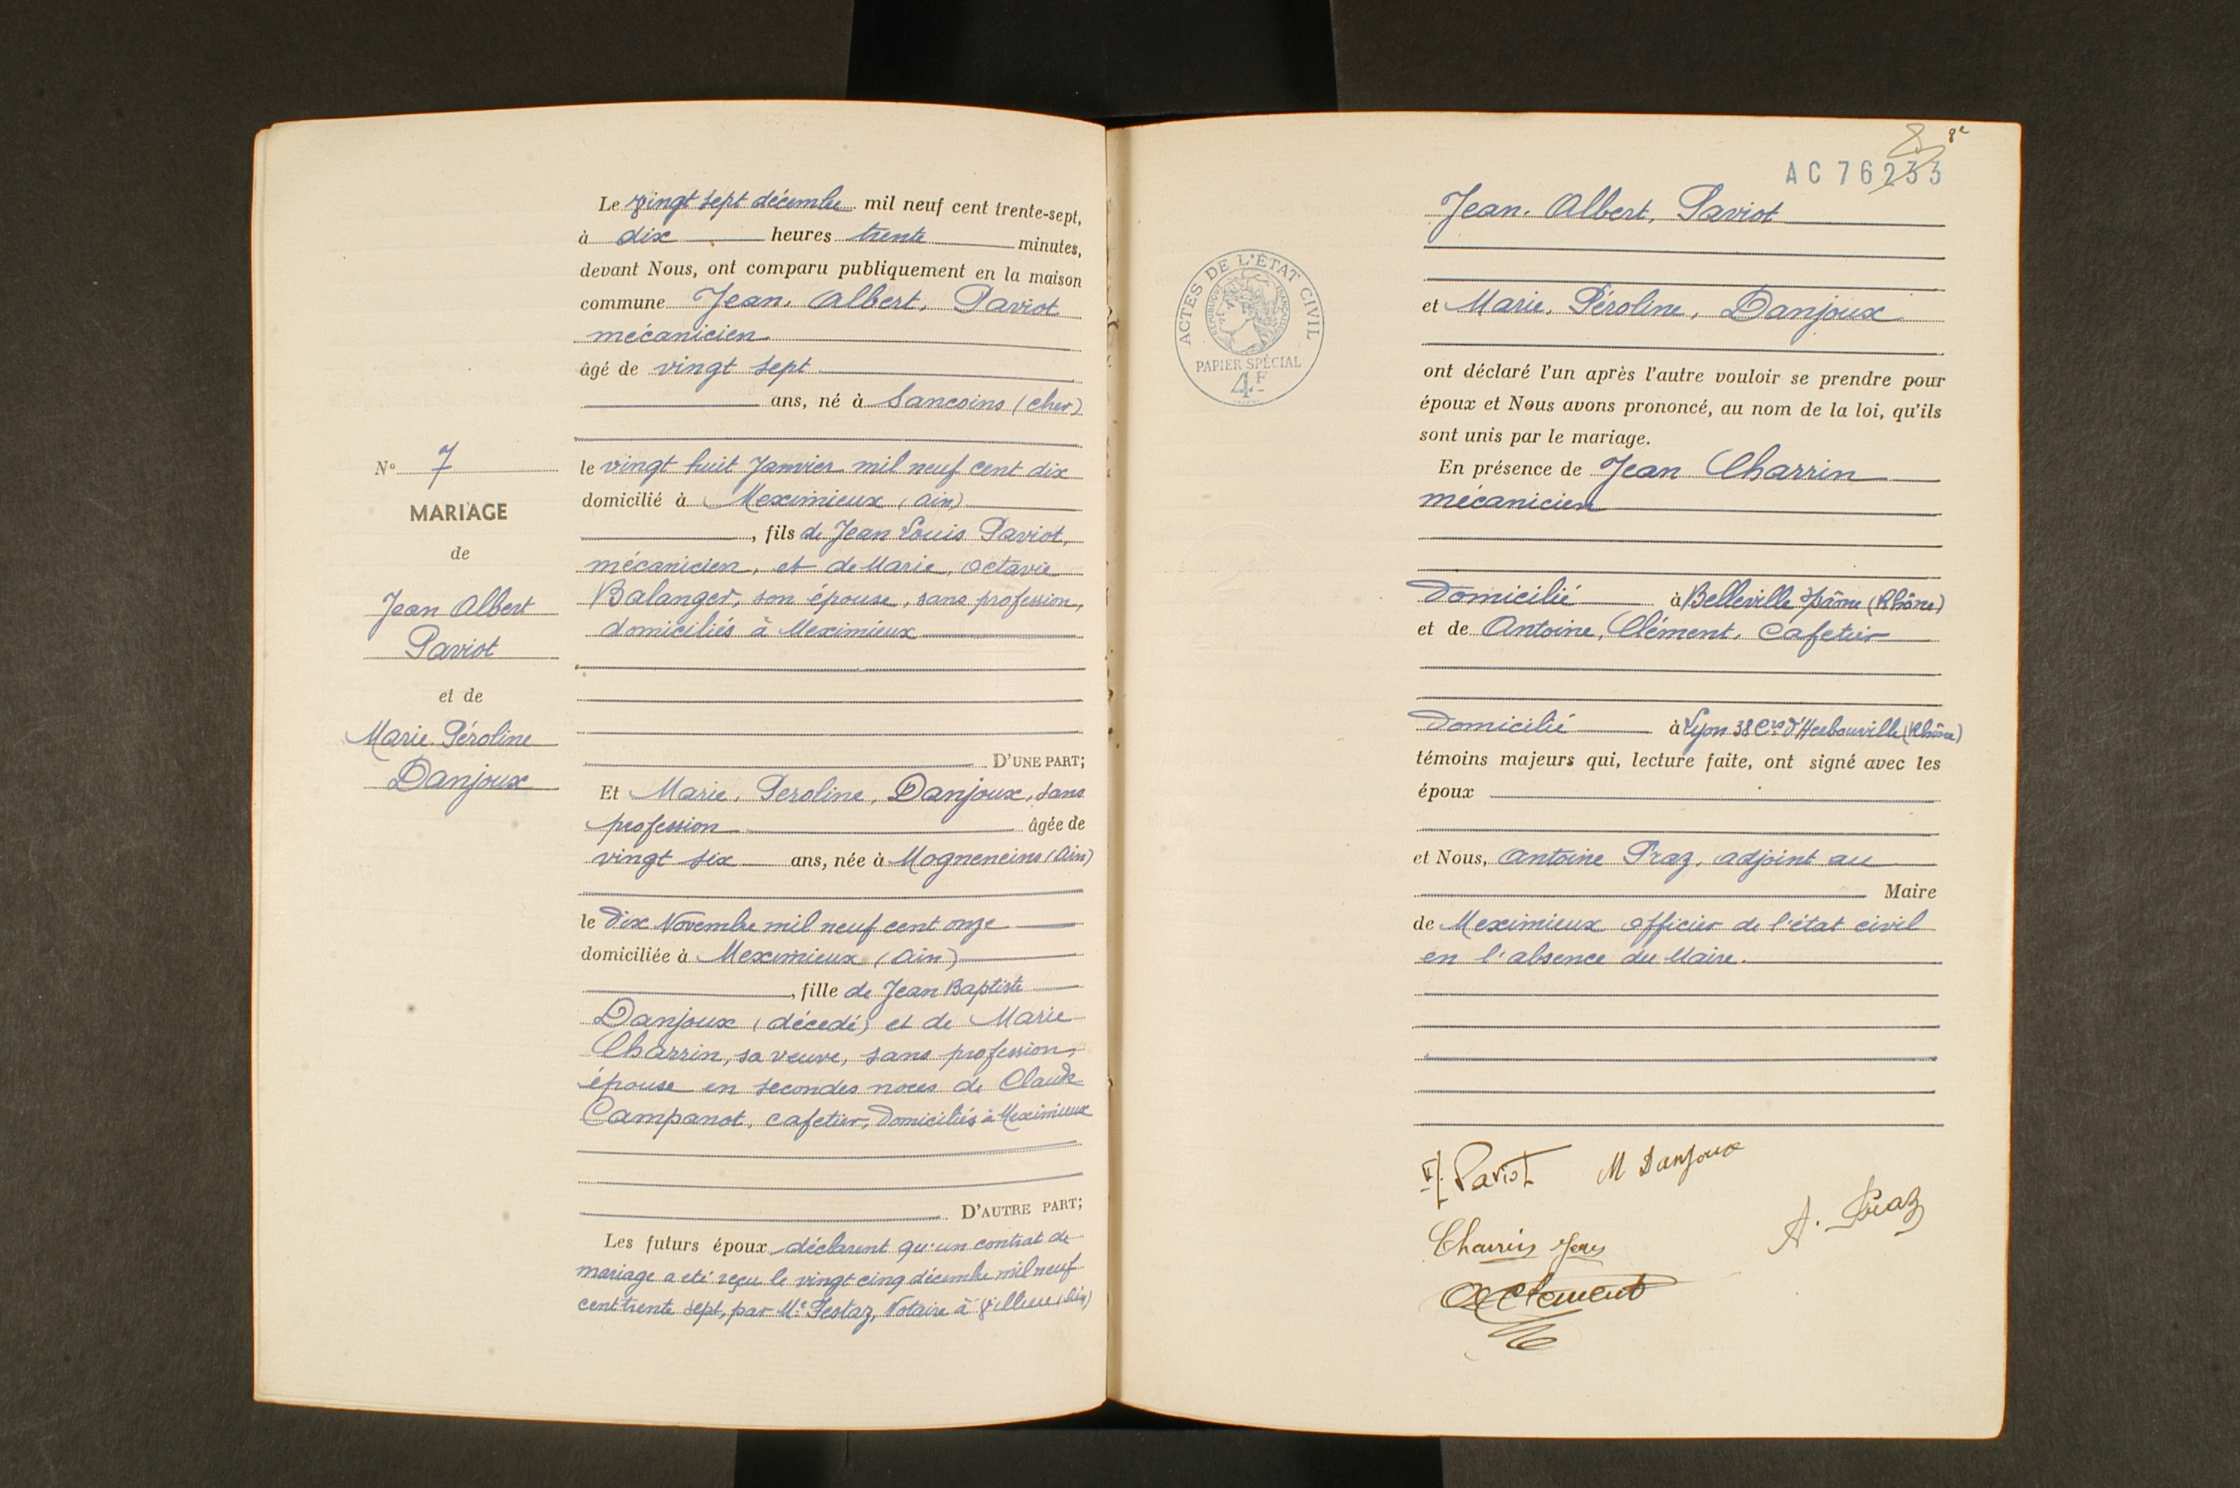 Le vingt sept décembre mil neuf cent trente-sept,
à dix heures trente minutes,
devant Nous, ont comparu publiquement en la maison
commune Jean, Albert, Paviot
mécanicien
âgé de vingt sept
ans, né à Sancoins (Cher)
N° 7
MARIAGE
de
Jean Albert
Paviot
et de
Marie Péroline
Danjoux
le vingt huit Janvier mil neuf cent dix
domicilié à Meximieux (Ain)
, fils de Jean Louis Paviot,
mécanicien, et de Marie, Octavie
Balanger, son épouse, sans profession,
domiciliés à Meximieux
D'UNE PART;
Et Marie, Peroline, Danjoux, sans
profession âgée de
vingt six ans, née à Mogneneins (Ain)
le dix Novembre mil neuf cent onze
domiciliée à Meximieux (Ain)
, fille de Jean Baptiste
Danjoux (décedé) et de Marie
Charrin, sa veuve, sans profession,
épouse en secondes noces de Claude
Campanot, cafetier, domiciliés à Meximieux
D'AUTRE PART;
Les futurs époux déclarent qu'un contrat de
mariage a eté reçu le vingt cinq décembre mil neuf
cent trente sept, par Me Pestaz, Notaire à Villieu (Ain)
8e
AC 76233
Jean, Albert, Paviot
et Marie, Péroline, Danjoux
ACTES DE L'ÉTAT CIVIL
RÉPUBLIQUE FRANÇAISE
PAPIER SPÉCIAL
4F
ont déclaré l'un après l'autre vouloir se prendre pour
époux et Nous avons prononcé, au nom de la loi, qu'ils
sont unis par le mariage.
En présence de Jean Charrin
mécanicien
Domicilié à Belleville s/Saône (Rhône)
et de Antoine, Clément, Cafetier
Domicilié à Lyon 38 Crs d'Herbouville (Rhône)
témoins majeurs qui, lecture faite, ont signé avec les
époux
et Nous, Antoine Praz, adjoint au
Maire
de Meximieux officier de l'état civil
en l'absence du Maire.
Paviot M Danjoux
A. Praz
Charrin Jean
Clement